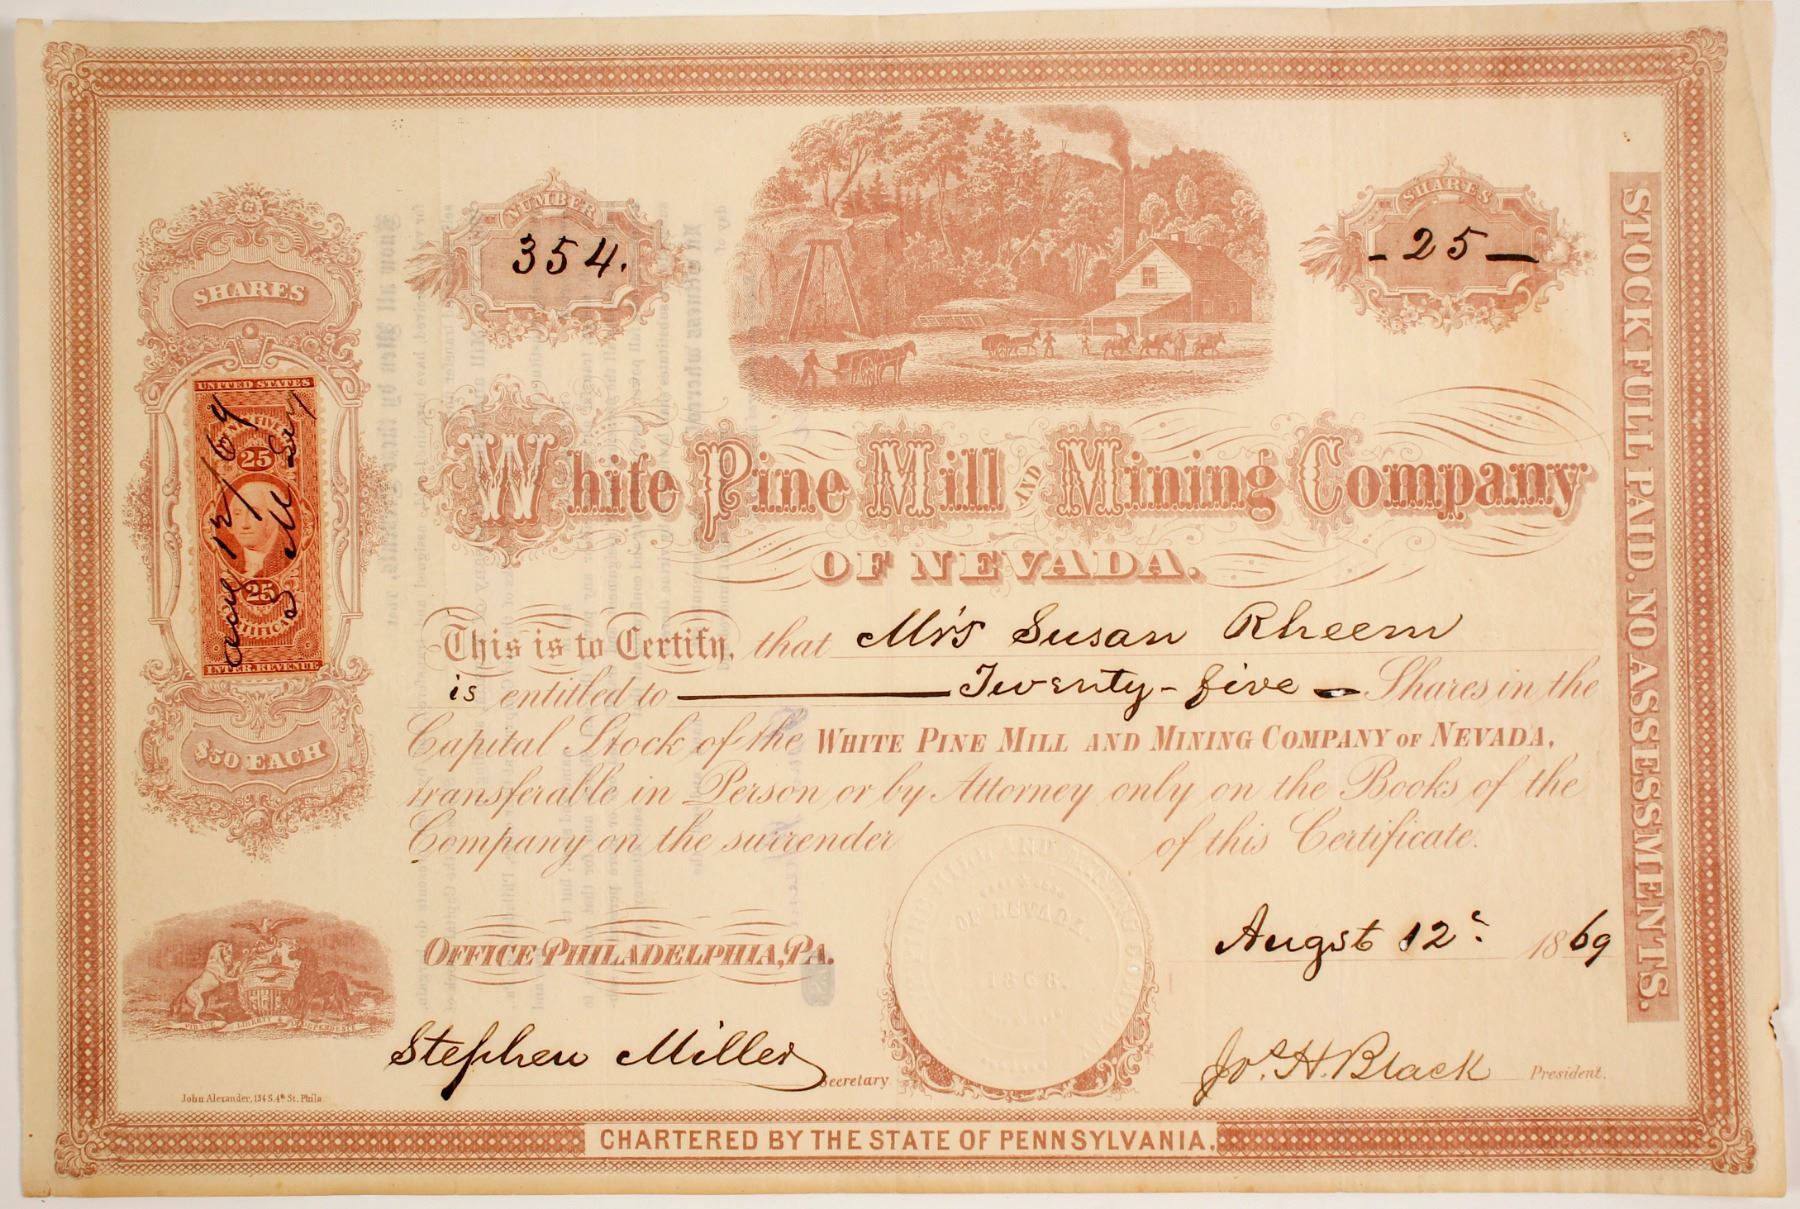 NUMBER
354.
SHARES
- 25 -
SHARES
UNITED STATES
25
25
INTER. REVENUE
Aug 12/69
S M Secy
$50 EACH
White Pine Mill AND Mining Company
OF NEVADA.
This is to Certify, that Mrs Susan Rheem
is entitled to Twenty-five Shares in the
Capital Stock of the WHITE PINE MILL AND MINING COMPANY OF NEVADA,
transferable in Person or by Attorney only on the Books of the
Company on the surrender of this Certificate.
OFFICE PHILADELPHIA, PA.
Augst 12 1869
OF NEVADA.
1868.
VIRTUE LIBERTY & INDEPENDENCE
Stephen Miller Secretary.
Jos. H. Black President.
John Alexander, 134 S. 4th St. Phila.
CHARTERED BY THE STATE OF PENNSYLVANIA.
STOCK FULL PAID. NO ASSESSMENTS.